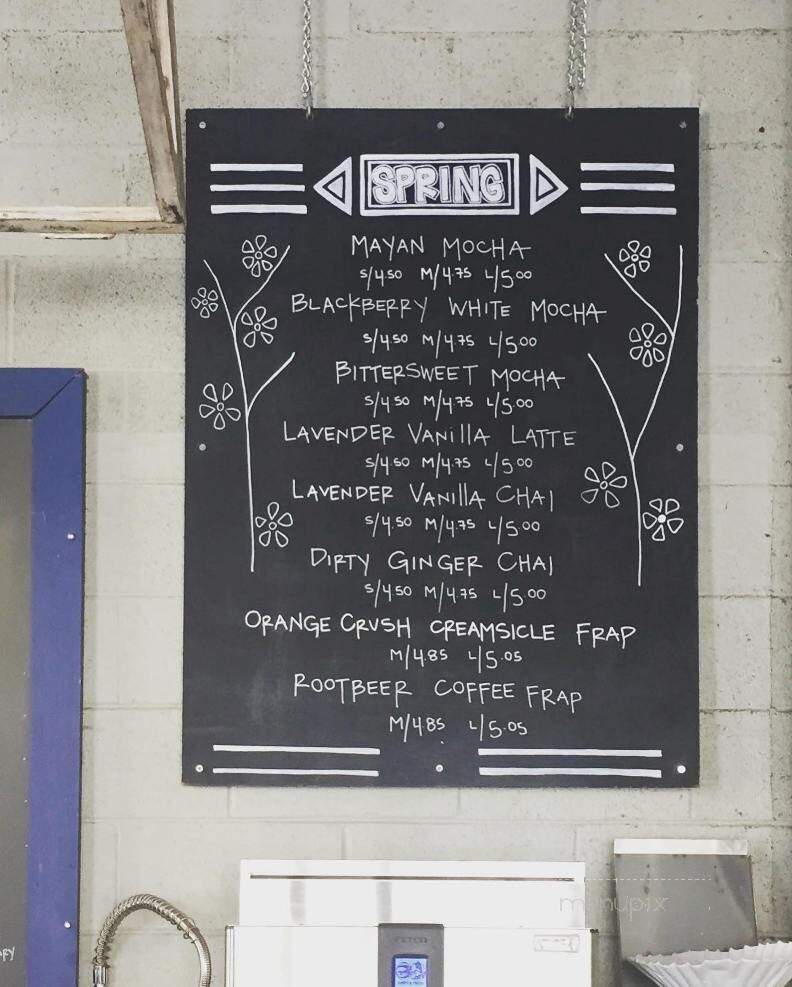 SPRING
MAYAN MOCHA
S/4.50 M/4.75 L/5.00
BLACKBERRY WHITE MOCHA
S/4.50 M/4.75 L/5.00
BITTERSWEET MOCHA
S/4.50 M/4.75 L/5.00
LAVENDER VANILLA LATTE
S/4.50 M/4.75 L/5.00
LAVENDER VANILLA CHAI
S/4.50 M/4.75 L/5.00
DIRTY GINGER CHAI
S/4.50 M/4.75 L/5.00
ORANGE CRUSH CREAMSICLE FRAP
M/4.85 L/5.05
ROOTBEER COFFEE FRAP
M/4.85 L/5.05
menupix
FETCO